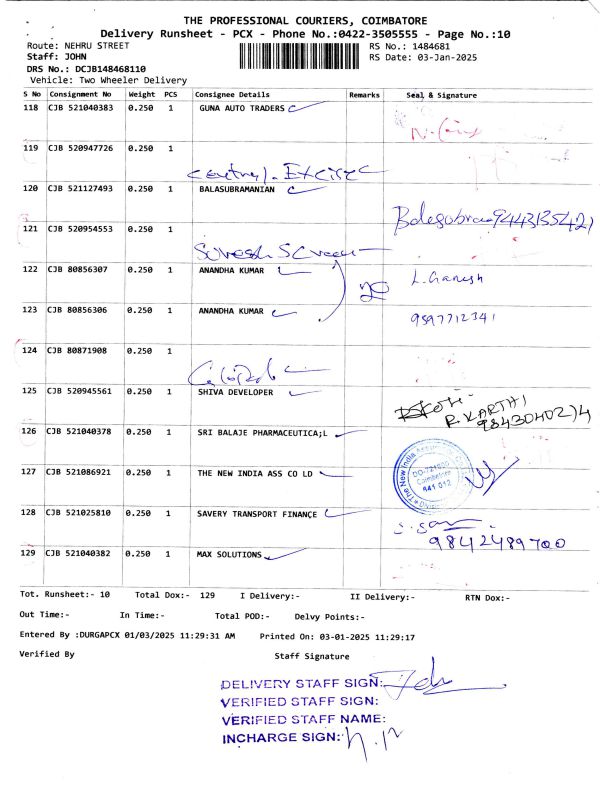 THE PROFESSIONAL COURIERS, COIMBATORE
Delivery Runsheet - PCX - Phone No.:0422-3505555 - Page No.:10
Route: NEHRU STREET
RS No.: 1484681
Staff: JOHN
RS Date: 03-Jan-2025
DRS No.: DCJB148468110
Vehicle: Two Wheeler Delivery
S No Consignment No Weight PCS Consignee Details Remarks Seal & Signature
118 CJB 521040383 0.250 1 GUNA AUTO TRADERS
119 CJB 520947726 0.250 1
120 CJB 521127493 0.250 1 BALASUBRAMANIAN
9443135421
121 CJB 520954553 0.250 1
122 CJB 80856307 0.250 1 ANANDHA KUMAR L. Ganesh
123 CJB 80856306 0.250 1 ANANDHA KUMAR 9597712341
124 CJB 80871908 0.250 1
125 CJB 520945561 0.250 1 SHIVA DEVELOPER
R.KARTHI
126 CJB 521040378 0.250 1 SRI BALAJE PHARMACEUTICA;L
127 CJB 521086921 0.250 1 THE NEW INDIA ASS CO LD
Coimbatore
641 012
128 CJB 521025810 0.250 1 SAVERY TRANSPORT FINANCE
9842489700
129 CJB 521040382 0.250 1 MAX SOLUTIONS
Tot. Runsheet:- 10 Total Dox:- 129 I Delivery:- II Delivery:- RTN Dox:-
Out Time:- In Time:- Total POD:- Delvy Points:-
Entered By :DURGAPCX 01/03/2025 11:29:31 AM Printed On: 03-01-2025 11:29:17
Verified By Staff Signature
DELIVERY STAFF SIGN:
VERIFIED STAFF SIGN:
VERIFIED STAFF NAME:
INCHARGE SIGN: